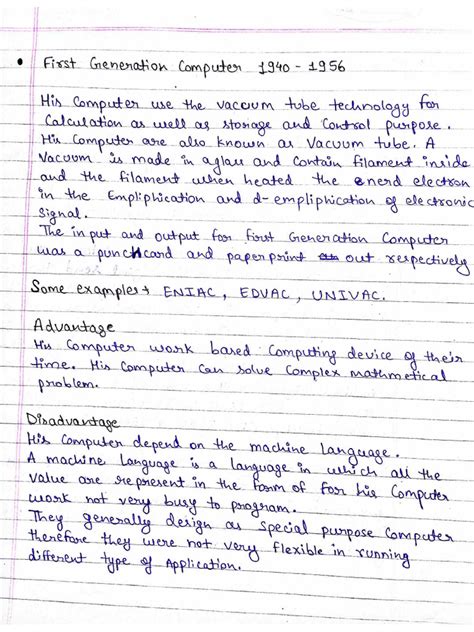 • First Generation Computer 1940 - 1956
His Computer use the vacoum tube technology for
Calculation as well as storage and Control purpose.
His Computer are also known as Vacuum tube. A
Vacoum is made in aglau and Contain filament inside
and the filament when heated the enerd electron
in the Empliphication and d-empliphication of electronic
Signal.
The input and output for first Generation Computer
was a punchcard and paperprint out respectively
Some examples → ENIAC, EDVAC, UNIVAC.
Advantage
His Computer work based Computing device of their
time. His Computer Can solve Complex mathmetical
problem.
Disadvantage
His Computer depend on the machine language.
A machine Language is a language in which all the
value are represent in the form of for his Computer
work not very busy to program.
They generally design as special purpose Computer
therefore they were not very flexible in running
different type of Application.